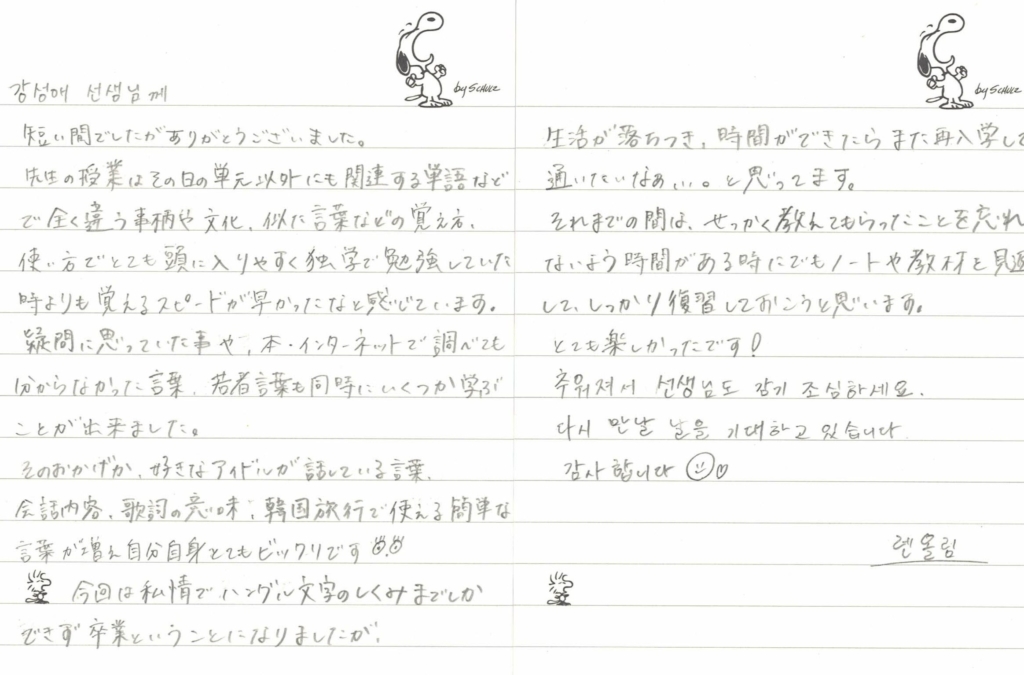 by SCHULZ
강성애 선생님께
短い間でしたがありがとうございました。
先生の授業はその日の単元以外にも関連する単語など
で全く違う事柄や文化、似た言葉などの覚え方、
使い方でとても頭に入りやすく独学で勉強していた
時よりも覚えるスピードが早かったなと感じています。
疑問に思っていた事や、本・インターネットで調べても
分からなかった言葉、若者言葉も同時にいくつか学ぶ
ことが出来ました。
そのおかげか、好きなアイドルが話している言葉、
会話内容、歌詞の意味、韓国旅行で使える簡単な
言葉が増え自分自身とてもビックリです
今回は私情でハングル文字のしくみまでしか
できず卒業ということになりましたが、
by SCHULZ
生活が落ちつき、時間ができたらまた再入学して
通いたいなぁ…。と思ってます。
それまでの間は、せっかく教えてもらったことを忘れ
ないよう時間がある時にでもノートや教材を見返
して、しっかり復習しておこうと思います。
とても楽しかったです!
추워져서 선생님도 감기 조심하세요.
다시 만날 날을 기대하고 있습니다.
감사합니다
렌 올림